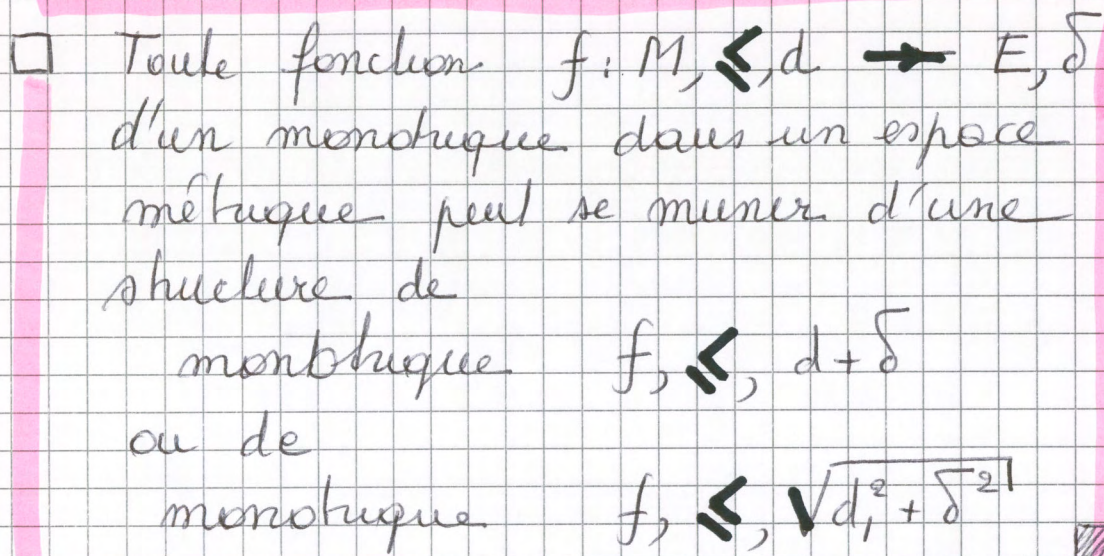 □ Toute fonction f : M, ⩽, d → E, δ
d'un monotrique dans un espace
métrique peut se munir d'une
structure de
monotrique f, ⩽, d + δ
ou de
monotrique f, ⩽, √d₁² + δ²